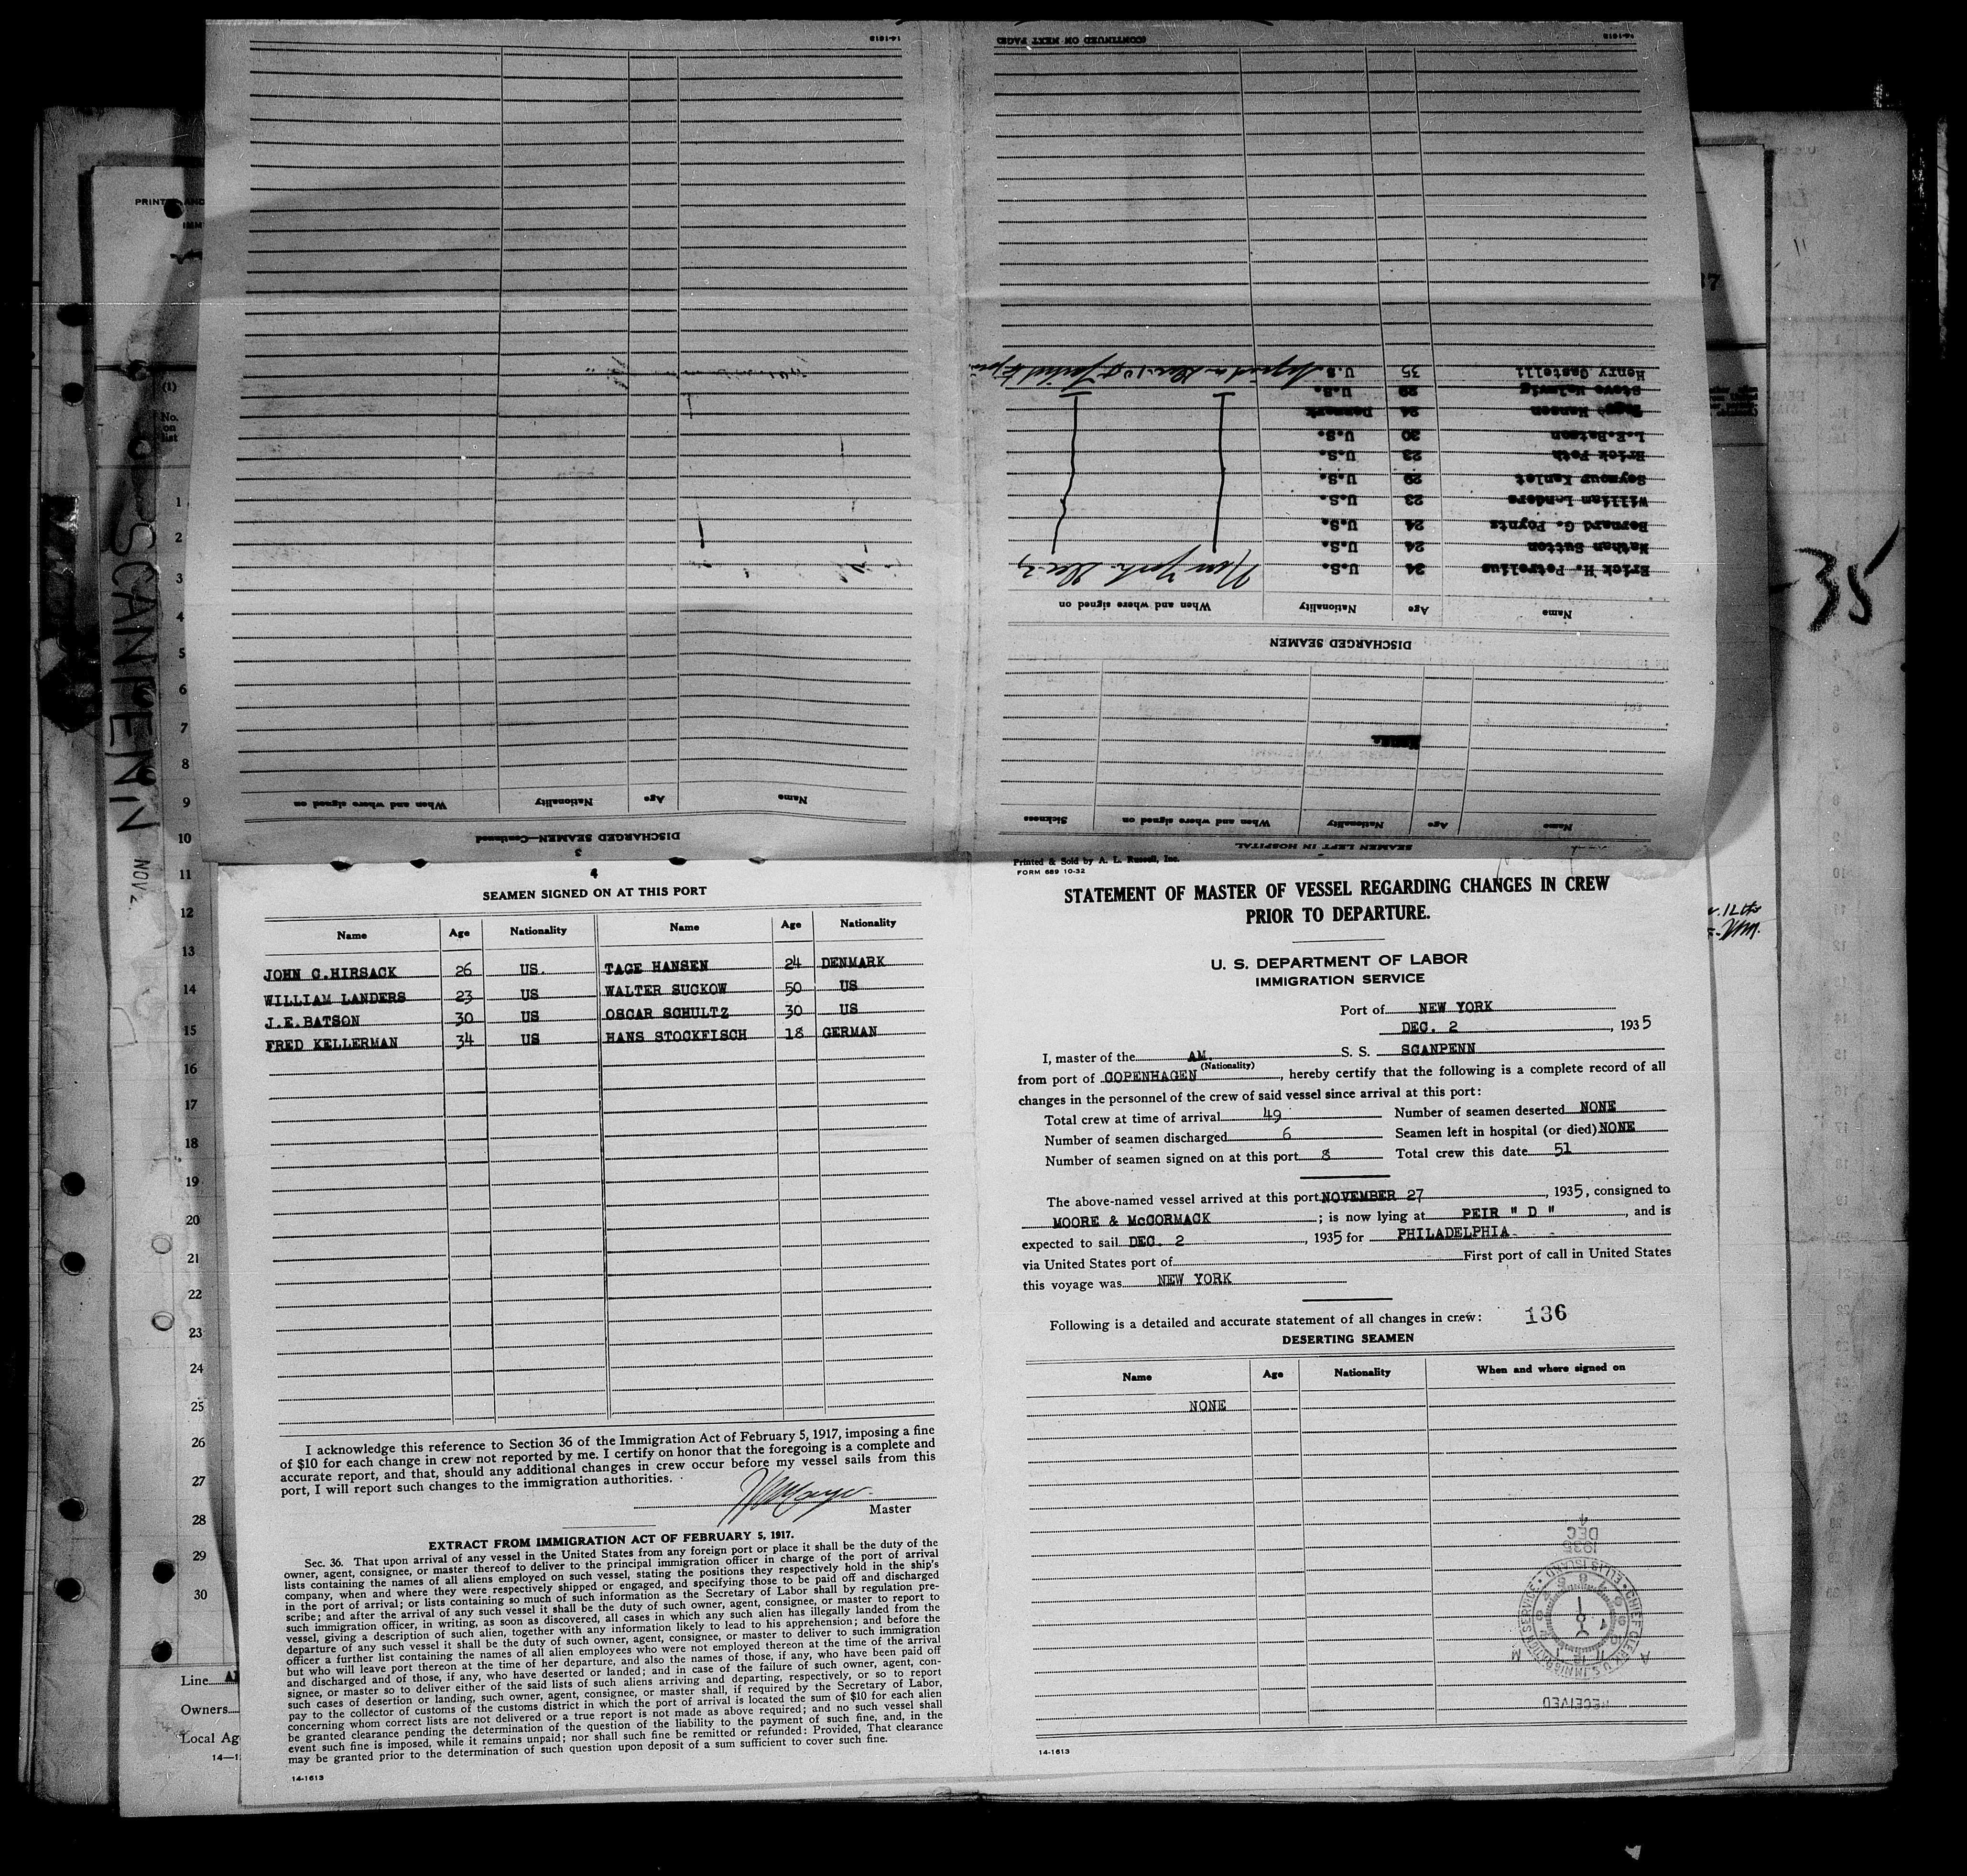 4
SEAMEN SIGNED ON AT THIS PORT
Name Age Nationality Name Age Nationality
JOHN C.HIRSACK 26 US. TAGE HANSEN 24 DENMARK
WILLIAM LANDERS 23 US WALTER SUCKOW 50 US
J.E.BATSON 30 US OSCAR SCHULTZ 30 US
FRED KELLERMAN 34 US HANS STOCKFISCH 18 GERMAN
I acknowledge this reference to Section 36 of the Immigration Act of February 5, 1917, imposing a fine
of $10 for each change in crew not reported by me. I certify on honor that the foregoing is a complete and
accurate report, and that, should any additional changes in crew occur before my vessel sails from this
port, I will report such changes to the immigration authorities.
Master
EXTRACT FROM IMMIGRATION ACT OF FEBRUARY 5, 1917.
Sec. 36. That upon arrival of any vessel in the United States from any foreign port or place it shall be the duty of the
owner, agent, consignee, or master thereof to deliver to the principal immigration officer in charge of the port of arrival
lists containing the names of all aliens employed on such vessel, stating the positions they respectively hold in the ship's
company, when and where they were respectively shipped or engaged, and specifying those to be paid off and discharged
in the port of arrival; or lists containing so much of such information as the Secretary of Labor shall by regulation pre-
scribe; and after the arrival of any such vessel it shall be the duty of such owner, agent, consignee, or master to report to
such immigration officer, in writing, as soon as discovered, all cases in which any such alien has illegally landed from the
vessel, giving a description of such alien, together with any information likely to lead to his apprehension; and before the
departure of any such vessel it shall be the duty of such owner, agent, consignee, or master to deliver to such immigration
officer a further list containing the names of all alien employees who were not employed thereon at the time of the arrival
but who will leave port thereon at the time of her departure, and also the names of those, if any, who have been paid off
and discharged and of those, if any, who have deserted or landed; and in case of the failure of such owner, agent, con-
signee, or master so to deliver either of the said lists of such aliens arriving and departing, respectively, or so to report
such cases of desertion or landing, such owner, agent, consignee, or master shall, if required by the Secretary of Labor,
pay to the collector of customs of the customs district in which the port of arrival is located the sum of $10 for each alien
concerning whom correct lists are not delivered or a true report is not made as above required; and no such vessel shall
be granted clearance pending the determination of the question of the liability to the payment of such fine, and, in the
event such fine is imposed, while it remains unpaid; nor shall such fine be remitted or refunded: Provided, That clearance
may be granted prior to the determination of such question upon deposit of a sum sufficient to cover such fine.
14-1613
Printed & Sold by A. L. Russell, Inc.
FORM 689 10-32
STATEMENT OF MASTER OF VESSEL REGARDING CHANGES IN CREW
PRIOR TO DEPARTURE.
U. S. DEPARTMENT OF LABOR
IMMIGRATION SERVICE
Port of NEW YORK
DEC. 2, 1935
I, master of the AM. S. S. SCANPENN
(Nationality)
from port of COPENHAGEN, hereby certify that the following is a complete record of all
changes in the personnel of the crew of said vessel since arrival at this port:
Total crew at time of arrival 49 Number of seamen deserted NONE
Number of seamen discharged 6 Seamen left in hospital (or died) NONE
Number of seamen signed on at this port 8 Total crew this date 51
The above-named vessel arrived at this port NOVEMBER 27, 1935, consigned to
MOORE & McCORMACK; is now lying at PEIR " D ", and is
expected to sail DEC. 2, 1935 for PHILADELPHIA
via United States port of First port of call in United States
this voyage was NEW YORK
Following is a detailed and accurate statement of all changes in crew: 136
DESERTING SEAMEN
Name Age Nationality When and where signed on
NONE
1935
DEC
4
CHIEF CLERK U.S. IMMIGRATION SERVICE • ELLIS ISLAND
RECEIVED
14-1613
SEAMEN LEFT IN HOSPITAL
Name Age Nationality When and where signed on Sickness
None.
DISCHARGED SEAMEN
Name Age Nationality When and where signed on
Erick H. Petrelius 24 U.S. New York Dec. 2
Nathan Sutton 24 U.S.
Bernard G. Poyntz 24 U.S.
William Landers 23 U.S.
Seymour Kanlet 29 U.S.
Erick Poth 23 U.S.
L.E.Batson 30 U.S.
Tage Hansen 24 Denmark
Steve Helmwig 29 U.S.
Henry Castelli 35 U.S. Signed on Dec. 1 & failed to join
(CONTINUED ON NEXT PAGE)
14-1613
3
DISCHARGED SEAMEN—Continued
Name Age Nationality When and where signed on
14-1613
SCANPENN
NOV 2
35
(1)
No.
on
list
1
2
3
4
5
6
7
8
9
10
11
12
13
14
15
16
17
18
19
20
21
22
23
24
25
26
27
28
29
30
Line
Owners
Local Ag